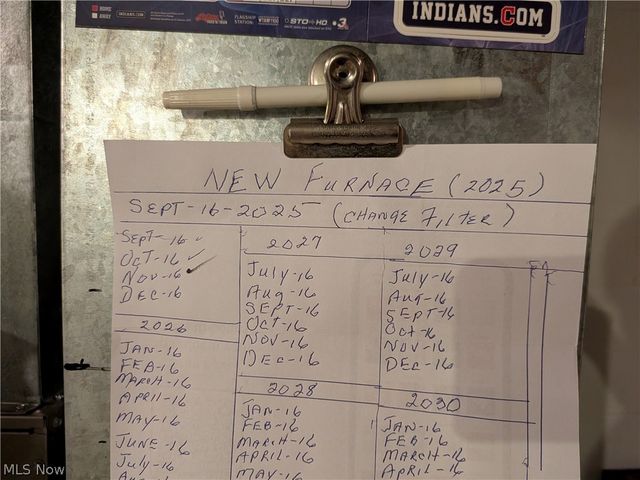 HOME
AWAY
INDIANS.COM
FLAGSHIP STATION
WTAM 1100
STO HD
3
INDIANS.COM
NEW FURNACE (2025)
SEPT-16-2025 (CHANGE FILTER)
SEPT-16 ✓
OCT-16 ✓
NOV-16 ✓
DEC-16
2026
JAN-16
FEB-16
MARCH-16
APRIL-16
MAY-16
JUNE-16
July-16
2027
July-16
Aug-16
SEPT-16
OCT-16
NOV-16
DEC-16
2028
JAN-16
FEB-16
MARCH-16
APRIL-16
MAY-16
2029
July-16
Aug-16
SEPT-16
Oct-16
NOV-16
DEC-16
2030
JAN-16
FEB-16
MARCH-16
APRIL-16
MLS Now